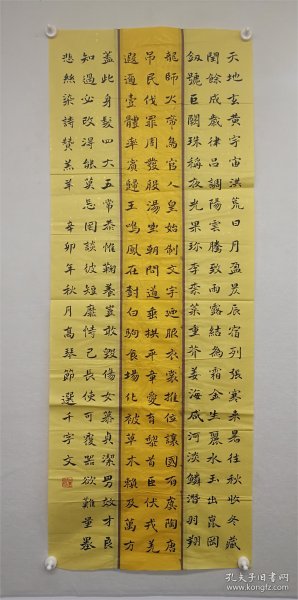 天地玄黃宇宙洪荒日月盈昃辰宿列張寒來暑往秋收冬藏
閏餘成歲律呂調陽雲騰致雨露結為霜金生麗水玉出崑岡
劍號巨闕珠稱夜光果珍李柰菜重芥姜海咸河淡鱗潛羽翔
龍師火帝鳥官人皇始制文字迺服衣裳推位讓國有虞陶唐
吊民伐罪周發殷湯坐朝問道垂拱平章愛育黎首臣伏戎羌
遐邇壹體率賓歸王鳴鳳在樹白駒食場化被草木賴及萬方
蓋此身髮四大五常恭惟鞠養豈敢毀傷女慕貞潔男效才良
知過必改得能莫忘罔談彼短靡恃己長使可覆器欲難量墨
悲絲染詩贊羔羊 辛卯年秋月高琴節選千字文
孔夫子旧书网